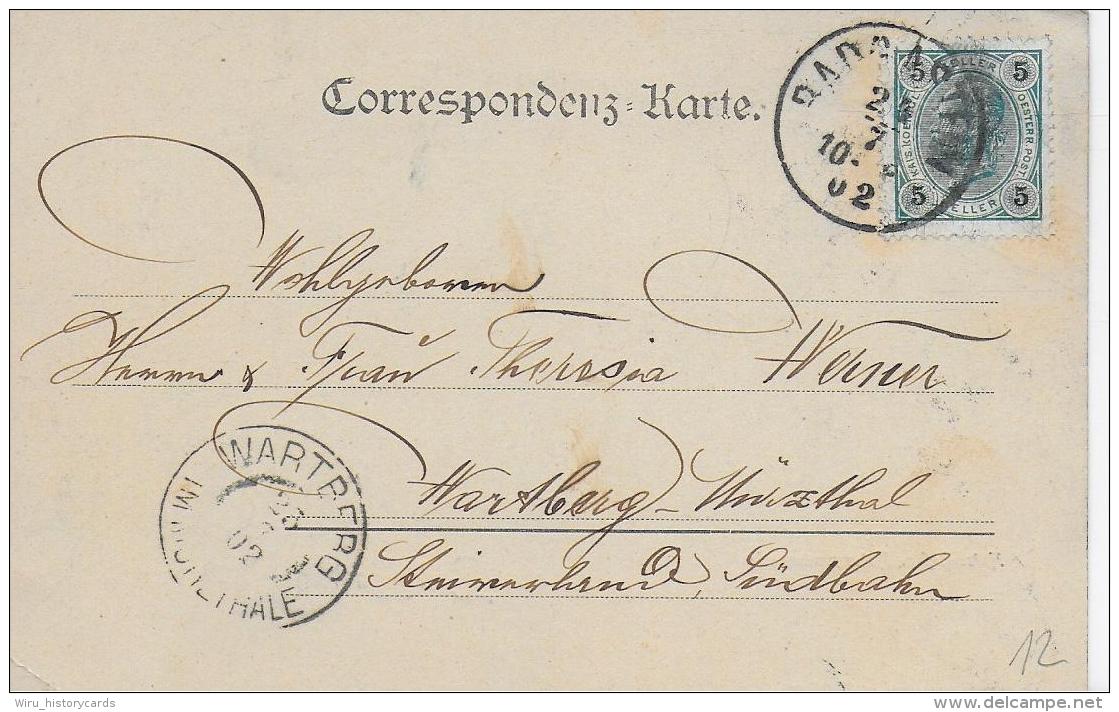 Correspondenz-Karte.
5 HELLER 5
KAIS. KOEN. OESTERR. POST.
5 HELLER 5
2
10.
02
Wohlgeboren
Herrn & Frau Theresia Werner
Wartberg - Mürzthal
Steiermark, Südbahn
WARTBERG
IM MÜRZTHALE
02
12
Wiru_historycards
delcampe.net